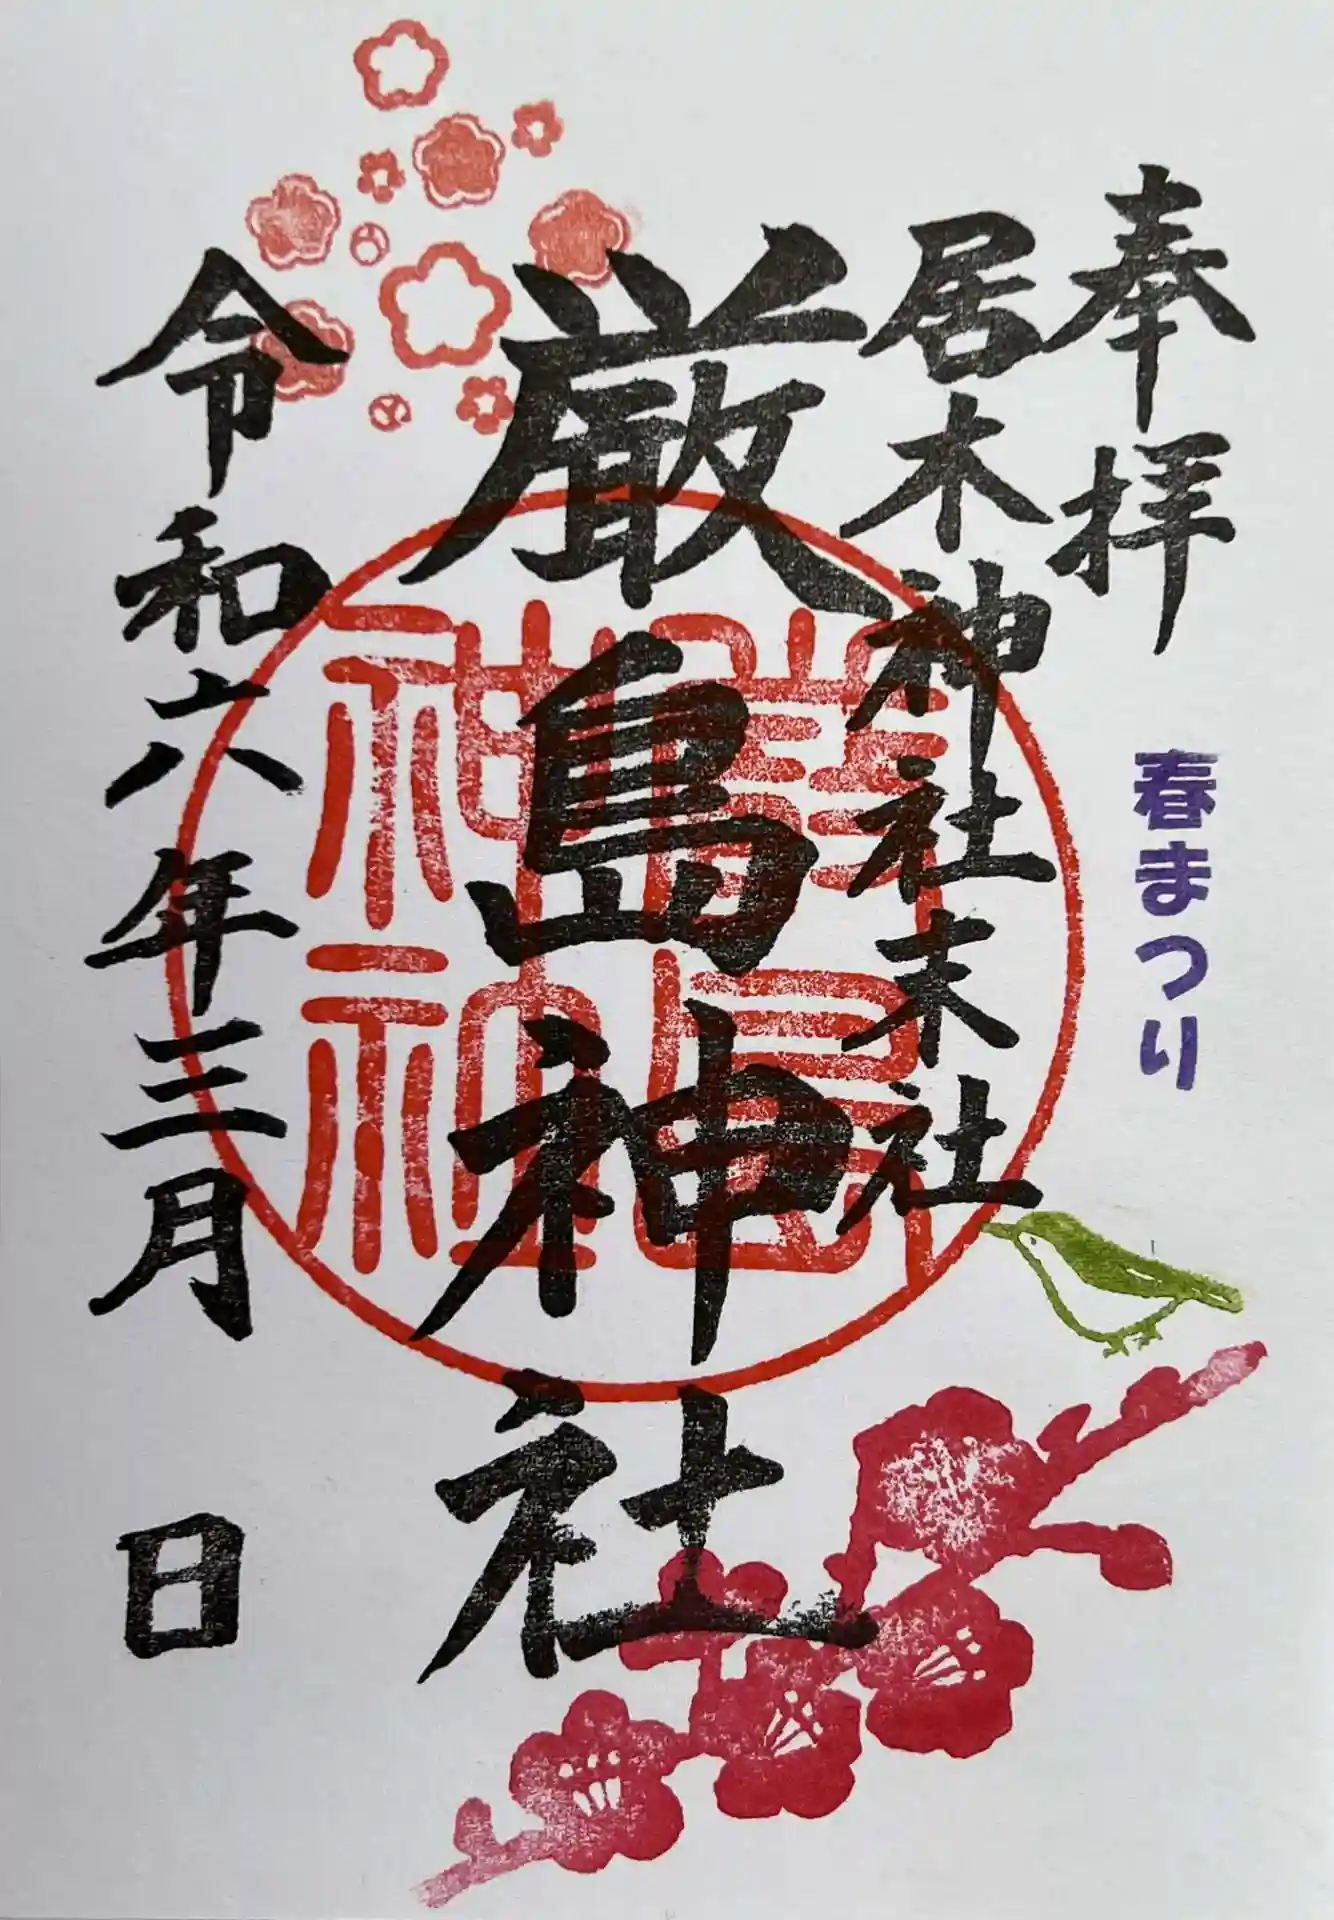 奉拝
春まつり
居木神社末社
厳島神社
厳島神社
令和六年三月 日